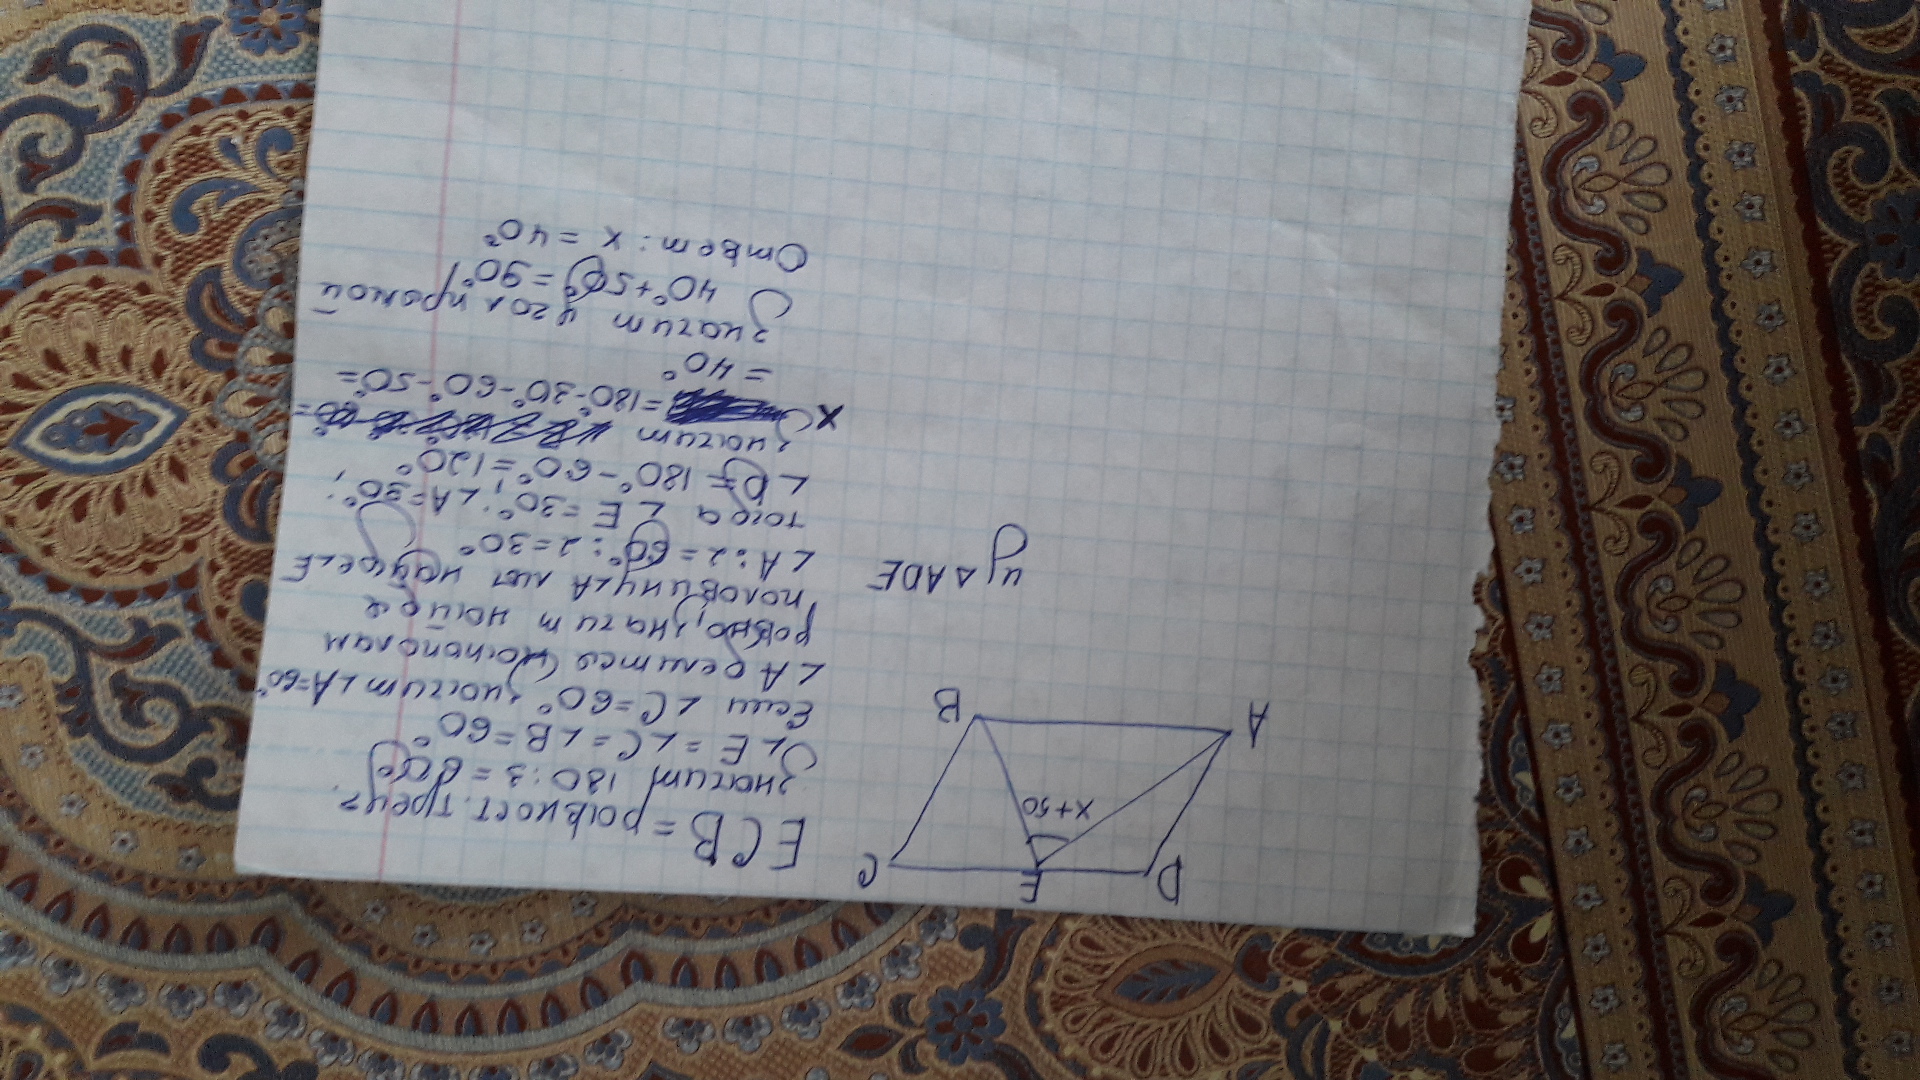 D
E
C
x+50
A
B
у △ADE
ECB = равност. треуг.
значит 180:3=60°
∠E = ∠C = ∠B = 60°
Если ∠C=60°, значит ∠A=60°
∠A делится напополам
ровно, значит найдя
половину ∠A мы найдем E
∠A:2=60°:2=30°
тогда ∠E =30°; ∠A=30°;
∠D = 180°-60°=120°
значит
x =180°-30°-60°-50°=
=40°
значит угол прямой
40°+50°=90°
Ответ: x=40°